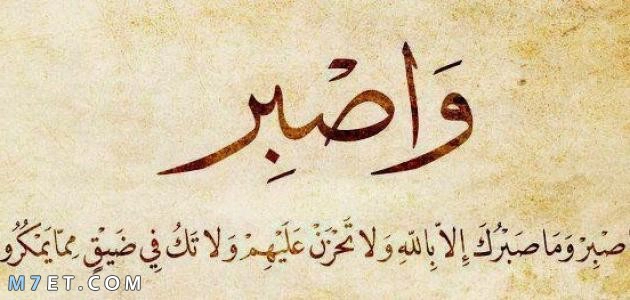 وَاصْبِر
صْبِرْ وَمَا صَبْرُكَ إِلاَّ بِاللهِ وَلاَ تَحْزَنْ عَلَيْهِمْ وَلاَ تَكُ فِي ضَيْقٍ مِمَّا يَمْكُرُو
M7ET.COM